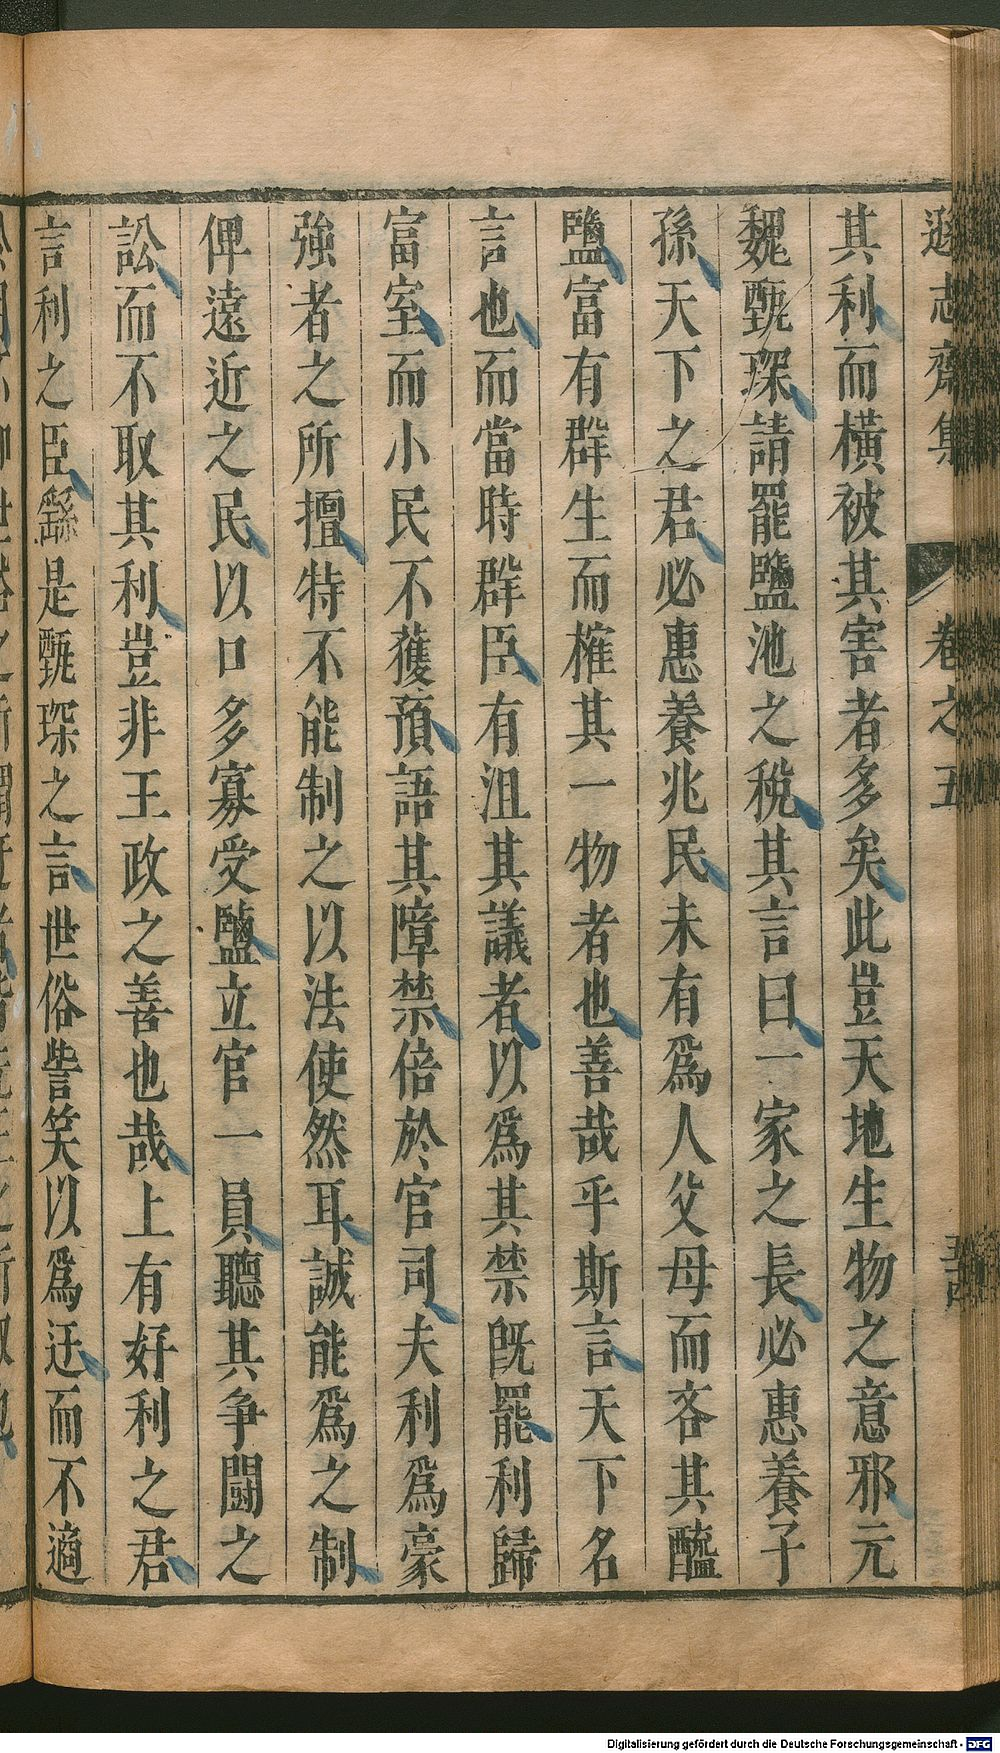 遜志齋集 卷之五
其利而橫被其害者多矣此豈天地生物之意邪元
魏甄琛請罷鹽池之稅其言曰一家之長必惠養子
孫天下之君必惠養兆民未有爲人父母而吝其醯
鹽富有群生而榷其一物者也善哉乎斯言天下名
言也而當時群臣有沮其議者以爲其禁旣罷利歸
富室而小民不獲預語其障禁倍於官司夫利爲豪
強者之所擅特不能制之以法使然耳誠能爲之制
俾遠近之民以口多寡受鹽立官一員聽其爭鬪之
訟而不取其利豈非王政之善也哉上有好利之君
言利之臣繇是甄琛之言世俗訾笑以爲迂而不適
Digitalisierung gefördert durch die Deutsche Forschungsgemeinschaft - DFG